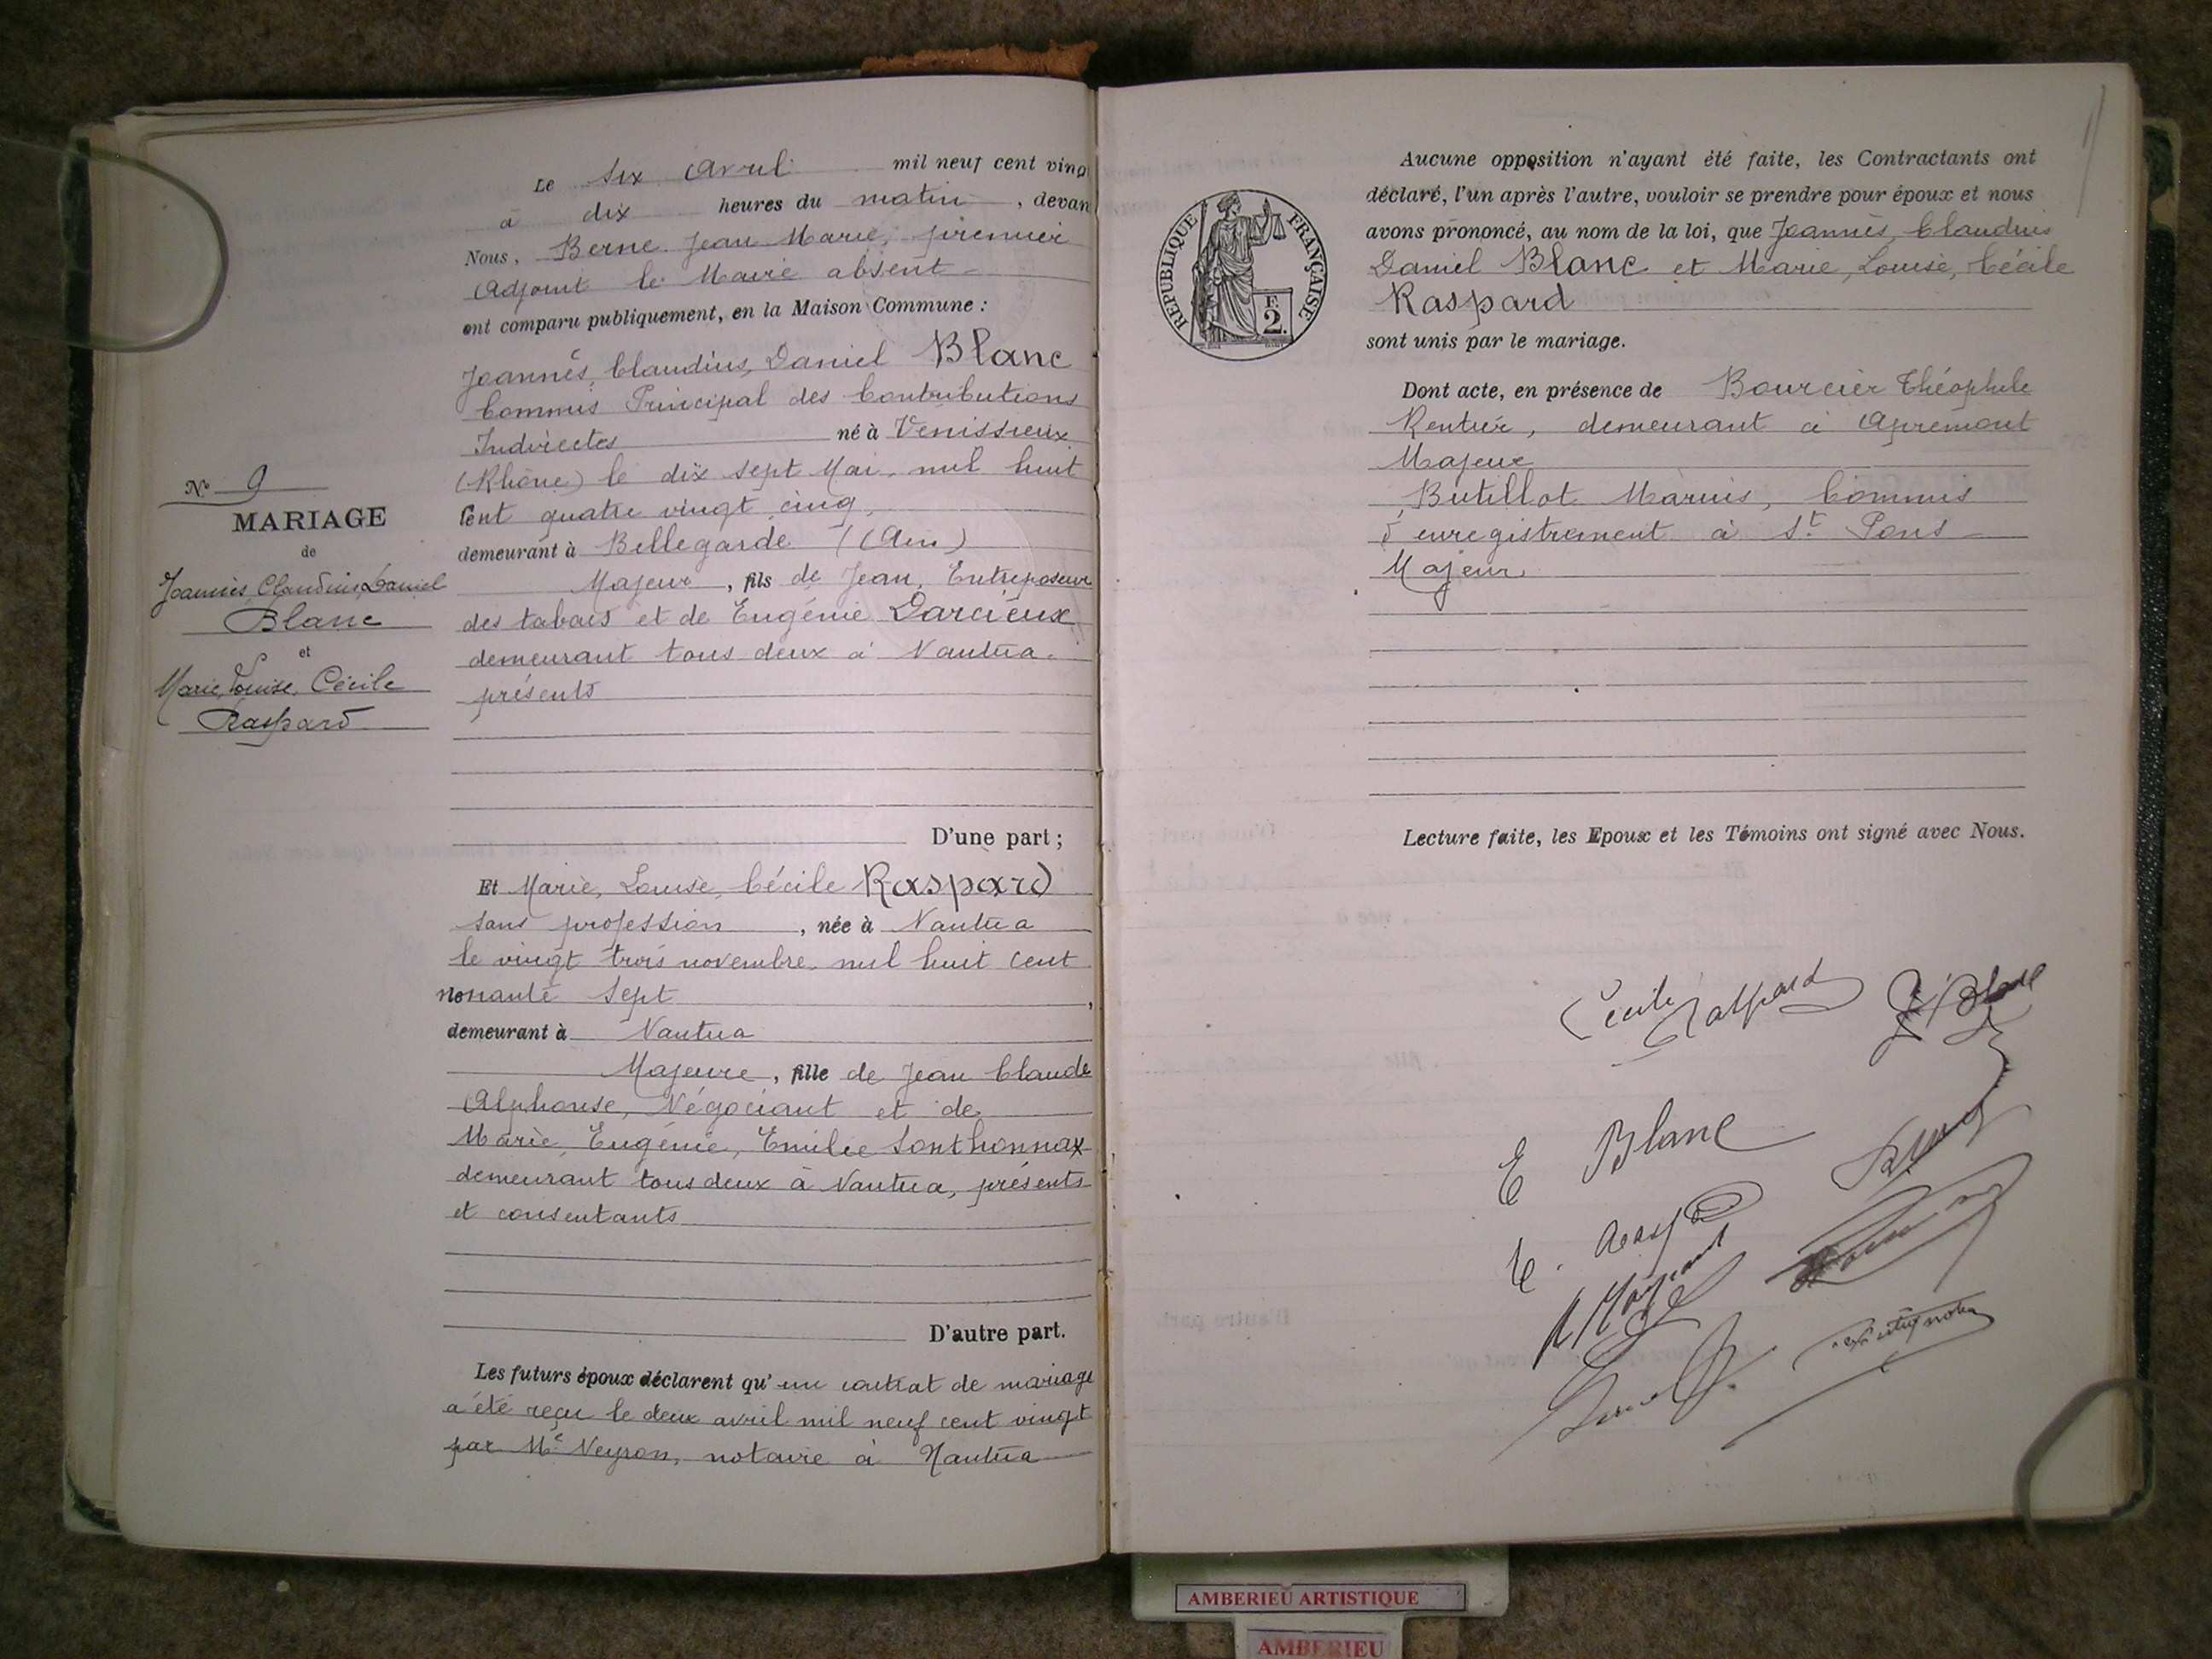 N° 9
MARIAGE
de
Joannès, Claudius, Daniel
Blanc
et
Marie, Louise, Cécile
Raspard
Le six Avril mil neuf cent vingt
à dix heures du matin, devan
Nous, Berne Jean Marie, premier
Adjoint le Maire absent
ont comparu publiquement, en la Maison Commune :
Joannès, Claudius, Daniel Blanc
Commis Principal des Contributions
Indirectes né à Vénissieux
(Rhône) le dix sept Mai mil huit
Cent quatre vingt cinq,
demeurant à Bellegarde (Ain)
Majeur, fils de Jean, Entreposeur
des tabacs et de Eugénie Darcieux
demeurant tous deux à Nantua.
présents
D'une part ;
Et Marie, Louise, Cécile Raspard
sans profession, née à Nantua
le vingt trois novembre mil huit cent
nonante sept,
demeurant à Nantua
Majeure, fille de Jean Claude
Alphonse, Négociant et de
Marie, Eugénie, Emilie Sonthonnax
demeurant tous deux à Nantua, présents
et consentants
D'autre part.
Les futurs époux déclarent qu'un contrat de mariage
a été reçu le deux avril mil neuf cent vingt
par Me Neyron, notaire à Nantua
REPUBLIQUE FRANÇAISE
F.
2.
Aucune opposition n'ayant été faite, les Contractants ont
déclaré, l'un après l'autre, vouloir se prendre pour époux et nous
avons prononcé, au nom de la loi, que Joannès, Claudius
Daniel Blanc et Marie, Louise, Cécile
Raspard
sont unis par le mariage.
Dont acte, en présence de Bourcier Théophile
Rentier, demeurant à Apremont
Majeur
Butillot Marius, Commis
d'enregistrement à St Pons
Majeur
Lecture faite, les Epoux et les Témoins ont signé avec Nous.
Cécile Raspard
Blanc
E Blanc
AMBERIEU ARTISTIQUE
AMBERIEU